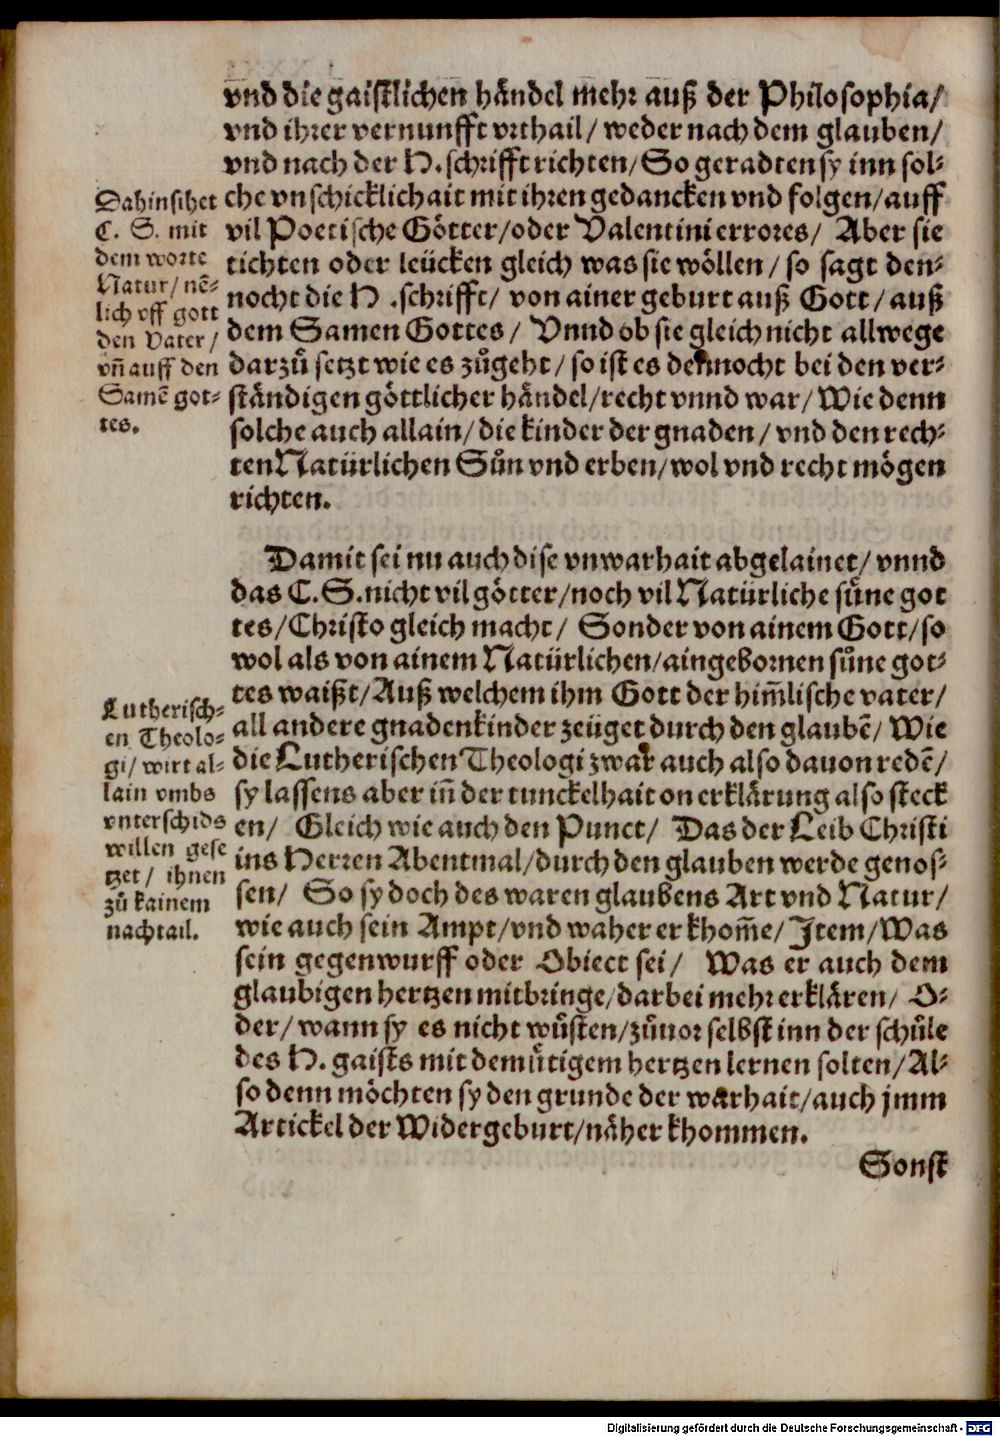 vnd die gaistlichen händel mehr auß der Philosophia/
vnd ihrer vernunfft vrthail/ weder nach dem glauben/
vnd nach der H. schrifft richten/ So geradten sy inn sol-
che vnschicklichait mit ihren gedancken vnd folgen/ auff
vil Poetische Götter/ oder Valentini errores/ Aber sie
tichten oder leücken gleich was sie wöllen/ so sagt den-
nocht die H. schrifft/ von ainer geburt auß Gott/ auß
dem Samen Gottes/ Vnnd ob sie gleich nicht allwege
darzuͦ setzt wie es zuͦgeht/ so ist es dennocht bei den ver-
ständigen göttlicher händel/ recht vnnd war/ Wie denn
solche auch allain/ die kinder der gnaden/ vnd den rech-
ten Natürlichen Sün vnd erben/ wol vnd recht mögen
richten.
Dahin sihet
C. S. mit
dem worte
Natur/ nẽ-
lich vff gott
den Vater/
vñ auff den
Samẽ got-
tes.
Damit sei nu auch dise vnwarhait abgelainet/ vnnd
das C. S. nicht vil götter/ noch vil Natürliche süne got
tes/ Christo gleich macht/ Sonder von ainem Gott/ so
wol als von ainem Natürlichen/ aingebornen süne got-
tes waißt/ Auß welchem ihm Gott der him̃lische vater/
all andere gnadenkinder zeüget durch den glaubẽ/ Wie
die Lutherischen Theologi zwar auch also dauon redẽ/
sy lassens aber iñ der tunckelhait on erklärung also steck
en/ Gleich wie auch den Punct/ Das der Leib Christi
ins Herren Abentmal/ durch den glauben werde genos-
sen/ So sy doch des waren glaubens Art vnd Natur/
wie auch sein Ampt/ vnd waher er khom̃e/ Item/ Was
sein gegenwurff oder Obiect sei/ Was er auch dem
glaubigen hertzen mitbringe/ darbei mehr erklären/ O-
der/ wann sy es nicht wüsten/ zuͦuor selbst inn der schuͦle
des H. gaists mit demütigem hertzen lernen solten/ Al-
so denn möchten sy den grunde der warhait/ auch jmm
Artickel der Widergeburt/ näher khommen.
Lutherisch-
en Theolo-
gi/ wirt al-
lain vmbs
vnterschids
willen gese
tzet/ ihnen
zuͦ kainem
nachtail.
Sonst
Digitalisierung gefördert durch die Deutsche Forschungsgemeinschaft - DFG